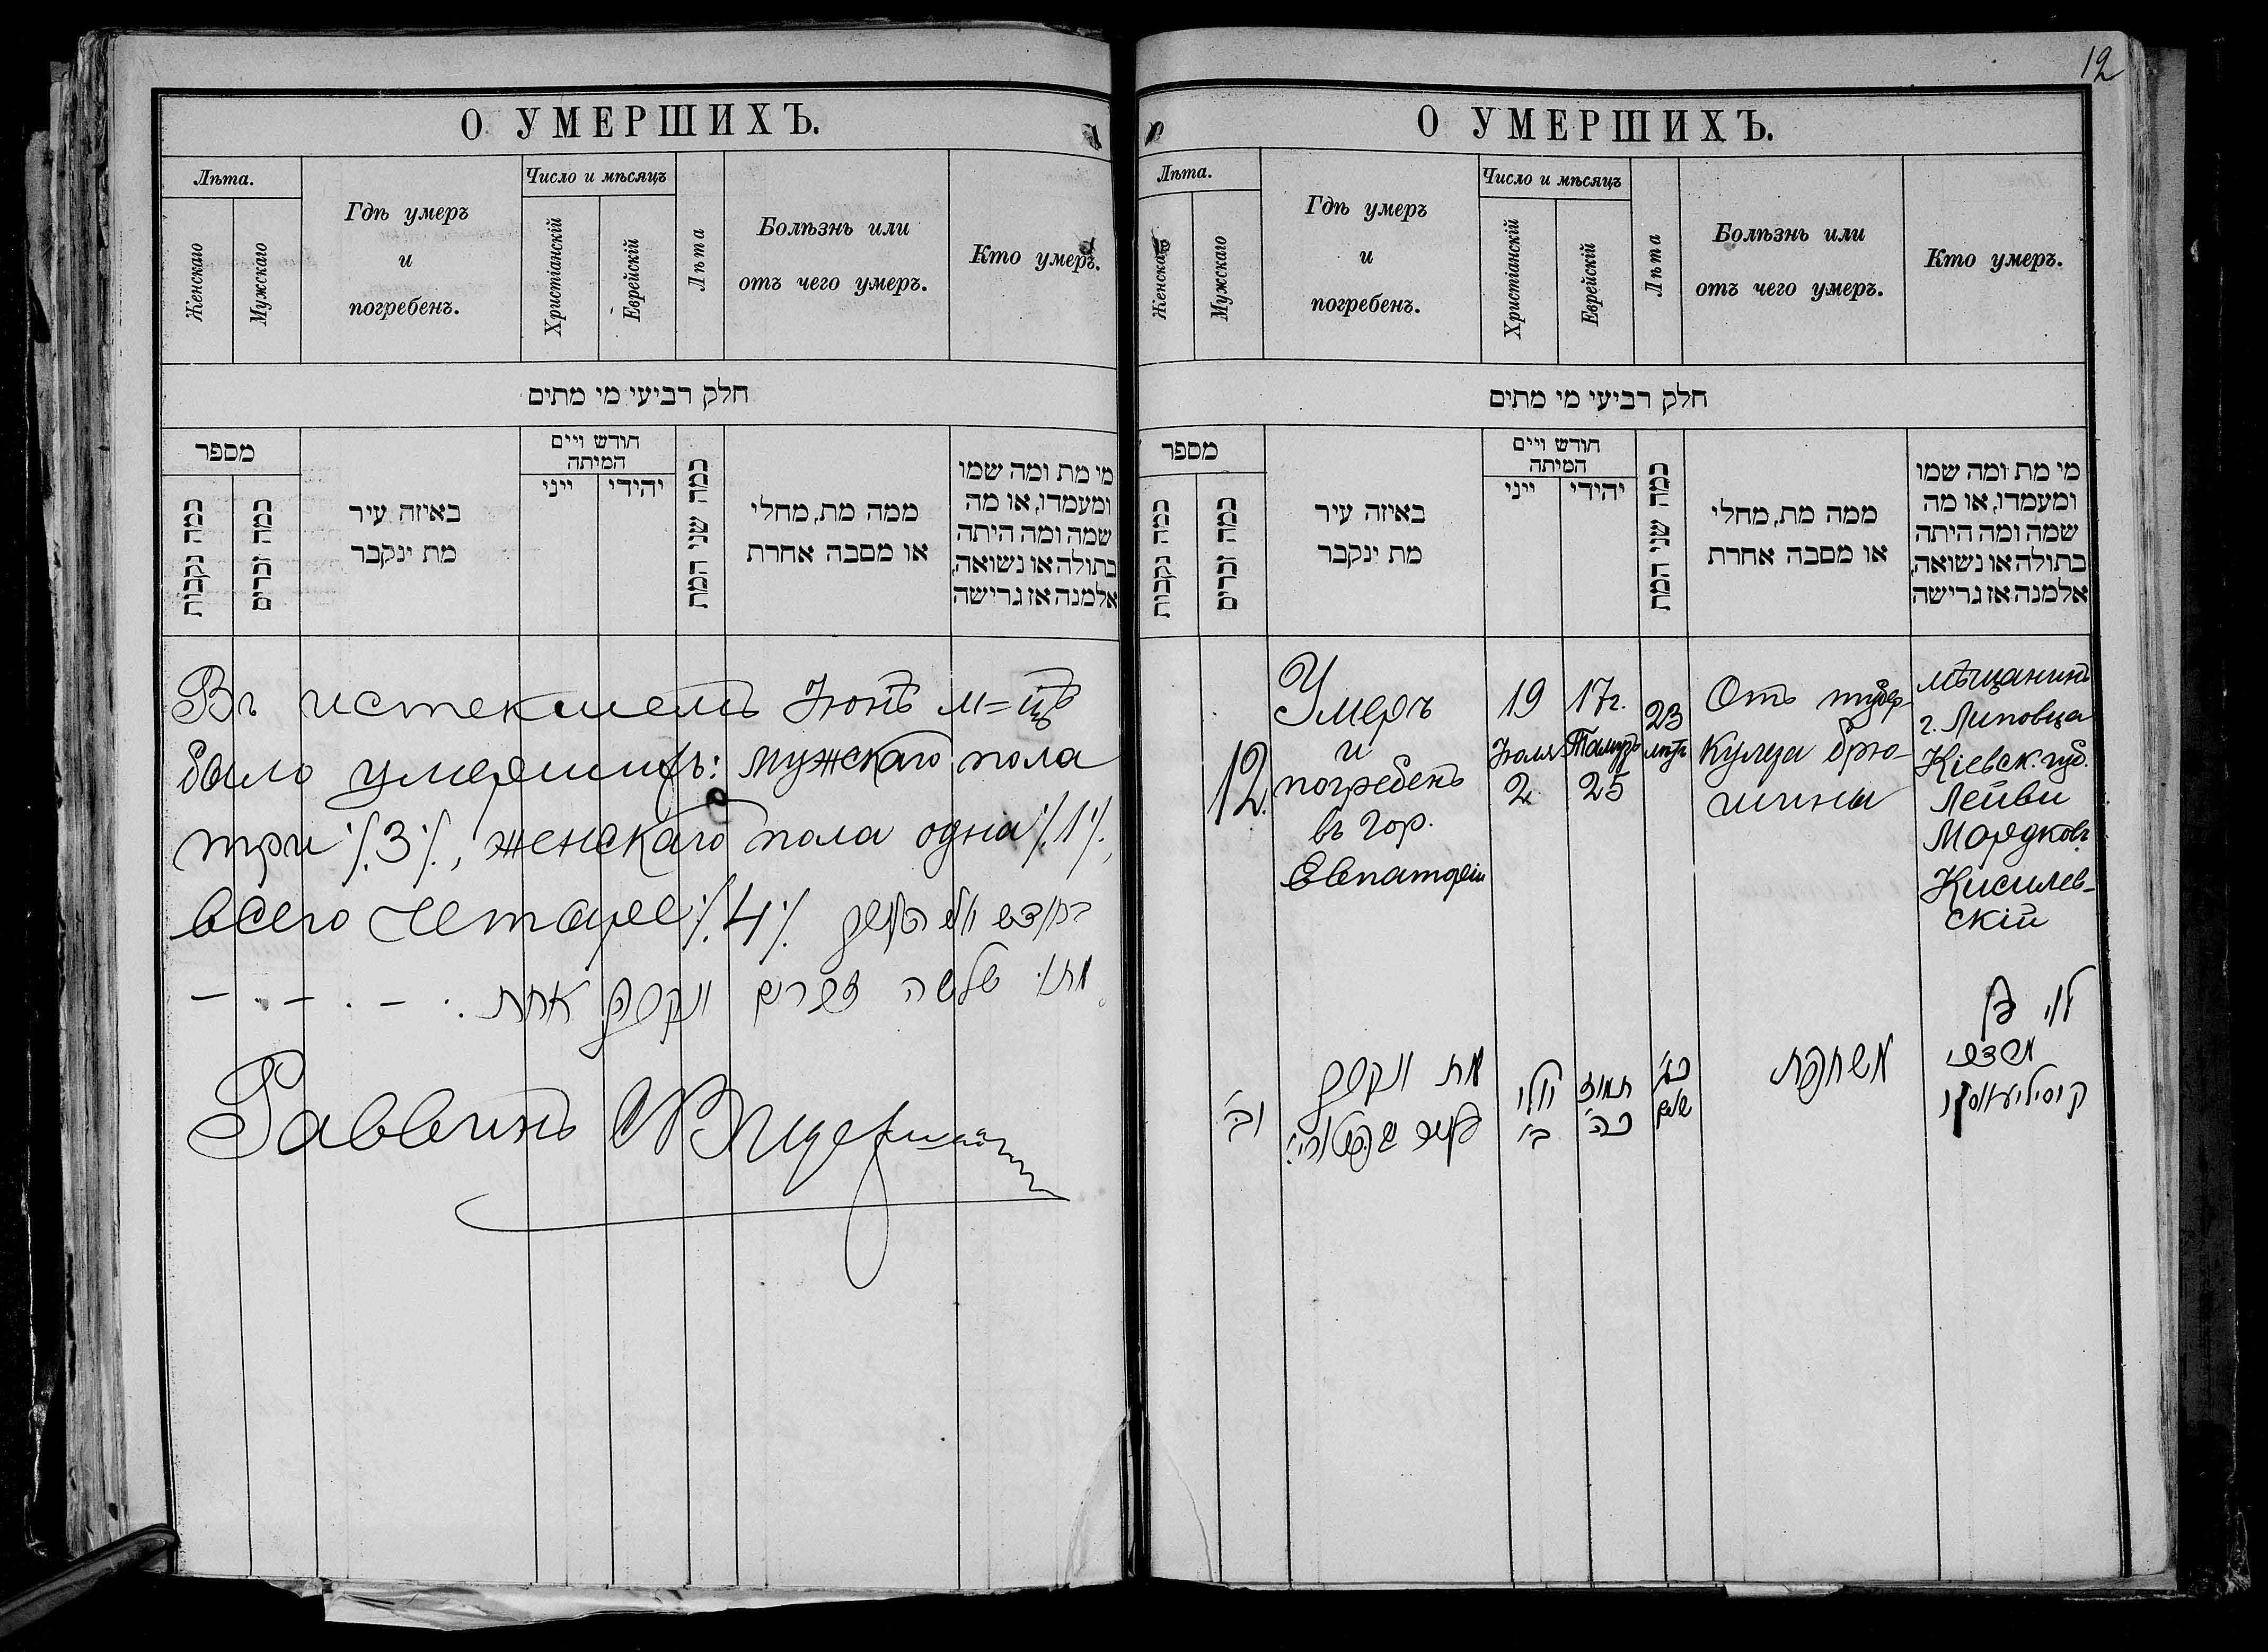 О УМЕРШИХЪ.
Лѣта.
Женскаго
Мужскаго
Гдѣ умеръ
и
погребенъ.
Число и мѣсяцъ
Христіанскій
Еврейскій
Лѣта
Болѣзнь или
отъ чего умеръ.
Кто умеръ.
חלק רביעי מי מתים
מספר
כמה נקבות
כמה זכרים
באיזה עיר
מת ינקבר
חודש ויים
המיתה
ייני
יהידי
כמה שני המת
ממה מת, מחלי
או מסבה אחרת
מי מת ומה שמו
ומעמדו, או מה
שמה ומה היתה
בתולה או נשואה,
אלמנה אז גרישה
Въ истекшемъ Іюнѣ м=цѣ
было умершихъ: мужскаго пола
три ./.3./., женскаго пола одна ./.1./.,
всего четыре ./.4./. בחודש
מתו שלשה זכרים ונקבה אחת.
Раввинъ
12
О УМЕРШИХЪ.
Лѣта.
Женскаго
Мужскаго
Гдѣ умеръ
и
погребенъ.
Число и мѣсяцъ
Христіанскій
Еврейскій
Лѣта
Болѣзнь или
отъ чего умеръ.
Кто умеръ.
חלק רביעי מי מתים
מספר
כמה נקבות
כמה זכרים
באיזה עיר
מת ינקבר
חודש ויים
המיתה
ייני
יהידי
כמה שני המת
ממה מת, מחלי
או מסבה אחרת
מי מת ומה שמו
ומעמדו, או מה
שמה ומה היתה
בתולה או נשואה,
אלמנה אז גרישה
12.
Умеръ
и
погребенъ
въ гор.
Евпаторіи
19
Іюля
2
17г.
Тамузъ
25
23
лѣтъ
Отъ тубер-
кулеза брю-
шины
мѣщанинъ
г. Липовца
Кіевск. губ.
Лейви
Мордковъ
Кисилев-
скій
מת ונקבר
בעיר
יולי
ב'
תמוז
כה'
כג'
שנים
משחפת
לוי בן
מרדכי